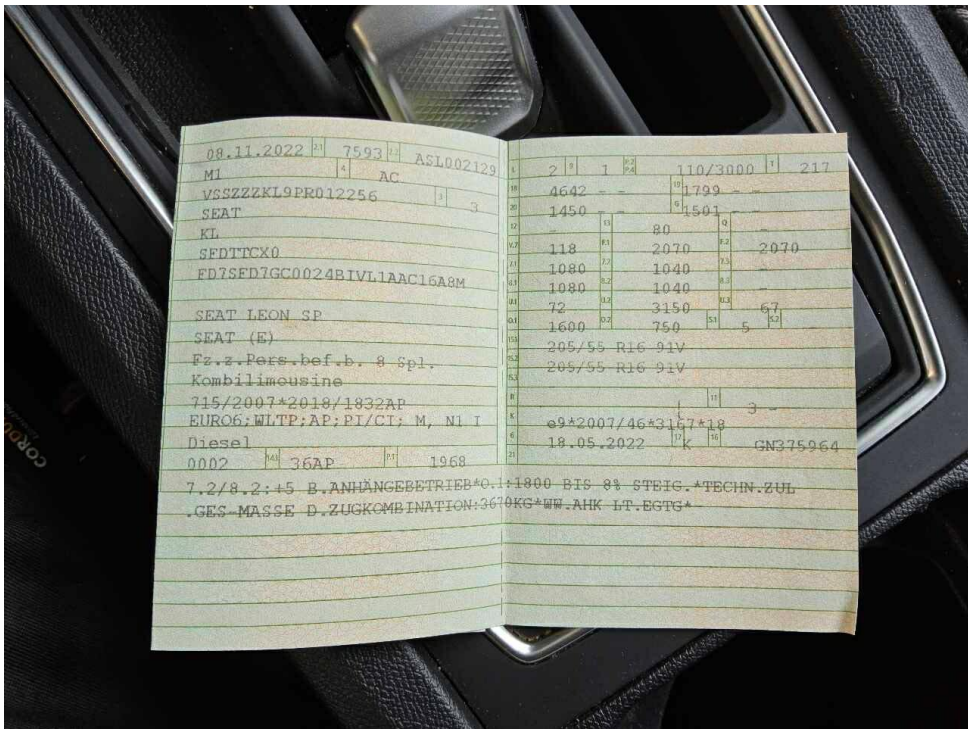 08.11.2022 2.1 7593 2.2 ASL002129
M1 4 AC
VSSZZZKL9PR012256 3 3
SEAT
KL
SFDTTCX0
FD7SFD7GC0024BIVL1AAC16A8M
SEAT LEON SP
SEAT (E)
Fz.z.Pers.bef.b. 8 Spl.
Kombilimousine
715/2007*2018/1832AP
EURO6;WLTP;AP;PI/CI; M, N1 I
Diesel
0002 14.1 36AP P.1 1968
L 2 9 1 P.2 P.4 110/3000 T 217
18 4642 - - 19 1799 - -
20 1450 - - G 1501 - -
12 - 13 80 Q -
V.7 118 F.1 2070 F.2 2070
7.1 1080 7.2 1040 7.3 -
8.1 1080 8.2 1040 8.3 -
U.1 72 U.2 3150 U.3 67
O.1 1600 O.2 750 S.1 5 S.2 -
15.1 205/55 R16 91V
15.2 205/55 R16 91V
15.3
R 11 3 -
K e9*2007/46*3167*18
6 18.05.2022 17 K 16 GN375964
21
7.2/8.2:+5 B.ANHÄNGEBETRIEB*O.1:1800 BIS 8% STEIG.*TECHN.ZUL
.GES-MASSE D.ZUGKOMBINATION:3670KG*WW.AHK LT.EGTG*-
CORDU